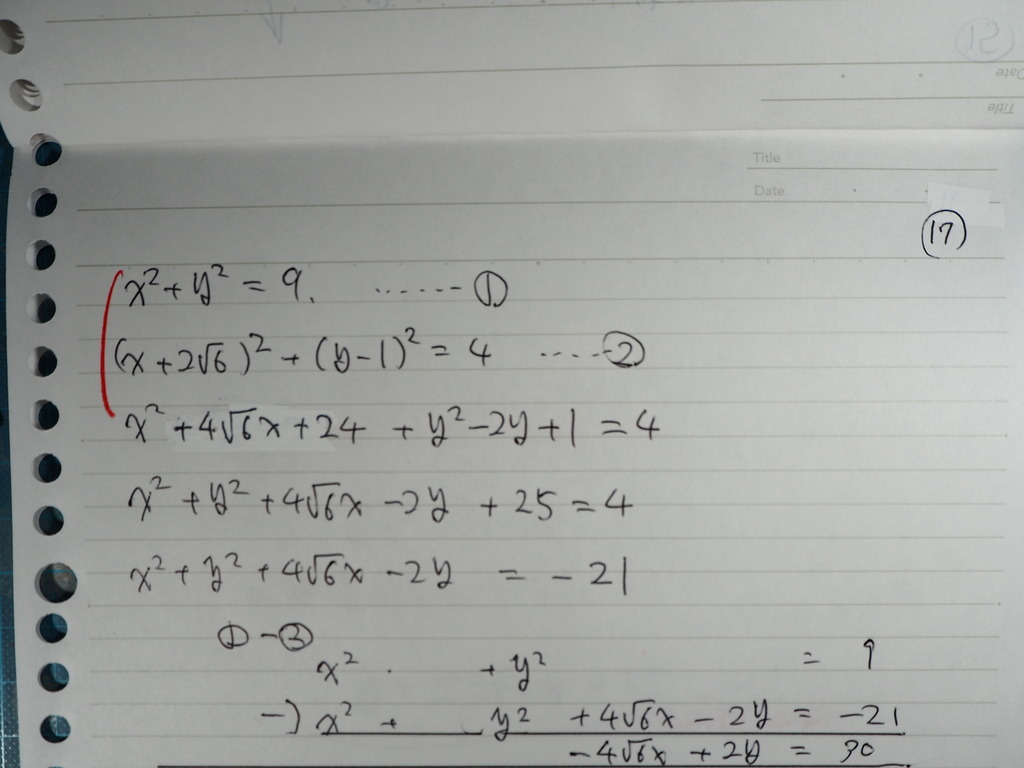 Title
Date
⑰
x² + y² = 9. ...... ①
(x + 2√6)² + (y - 1)² = 4 .... ②
x² + 4√6x + 24 + y² - 2y + 1 = 4
x² + y² + 4√6x - 2y + 25 = 4
x² + y² + 4√6x - 2y = -21
① - ②
x² + y² = 9
-) x² + y² + 4√6x - 2y = -21
-4√6x + 2y = 30